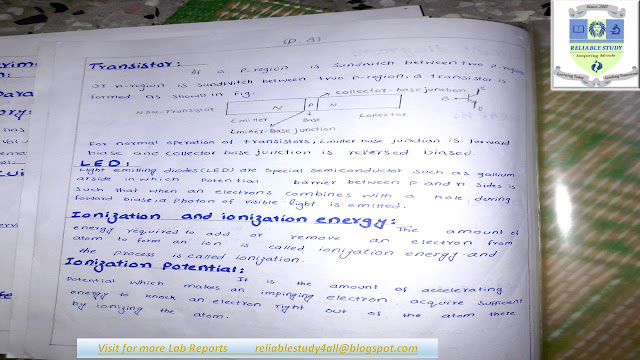 (P-8)
Transistor:
If a P-region is sandwitch between two P-region
or n-region is sandwitch between two P-region, a transistor is
formed as shown in fig.
Collector-base junction
NPN-Transistor
N
P
N
B
C
E
Emitter
Base
Collector
Emitter-Base junction
For normal operation of transistors, Emitter base junction is forward
biase and collector base junction is reversed biased
LED:
Light emitting diodes (LED) are special semiconductor such as gallium
arside in which potential barrier between p and n sides is
such that when an electrons combines with a hole during
foward biase, a photon of visible light is emitted.
Ionization and ionization energy:
The amount of
energy required to add or remove an electron from
atom to form an ion is called ionization energy and
the process is called ionization.
Ionization Potential:
It is the amount of accelerating
Potential which makes an impinging electron acquire sufficient
energy to knock an electron right out of the atom there
by ionizing the atom.
Since 2007
RELIABLE STUDY
Inspiring Minds
Visit for more Lab Reports reliablestudy4all@blogspot.com